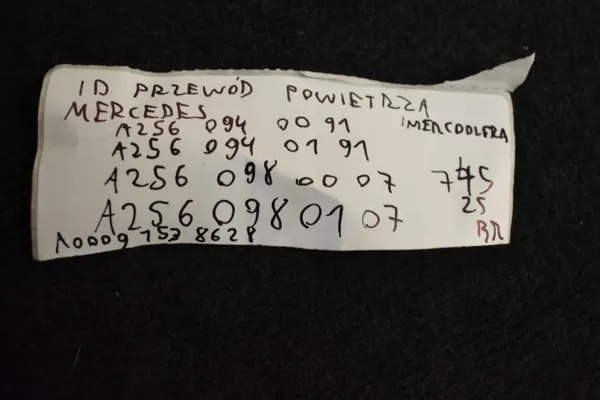 ID PRZEWÓD POWIETRZA
MERCEDES
A256 094 00 91
A256 094 01 91
A256 098 00 07 745
A256 098 01 07 25
BR